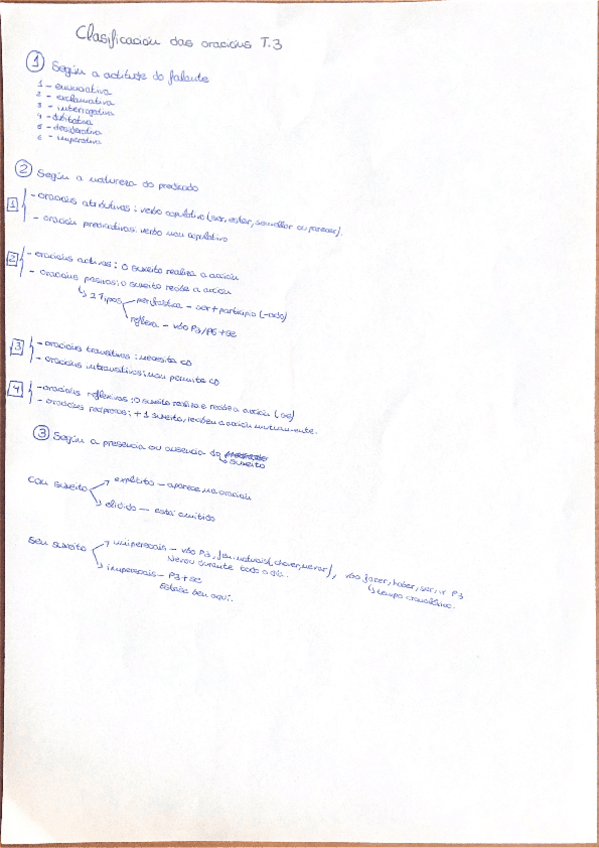 Clasificación das oracións T.3
① Según a actitude do falante
1 - enunciativa
2 - exclamativa
3 - interrogativa
4 - dubitativa
5 - desiderativa
6 - imperativa
② Según a natureza do predicado
1 - oracións atributivas: verbo copulativo (ser, estar, semellar ou parecer).
- oración predicativas: verbo non copulativo
2 - oracións activas: O suxeito realiza a acción
- oracións pasivas: o suxeito recibe a acción
↳ 2 Tipos perifrástica - ser + participio (-ado)
reflexa - vbo P3/P6 + se
3 - oracións transitivas: necesita CD
- oracións intransitivas: non permite CD
4 - oracións reflexivas: O suxeito realiza e recibe a acción (se)
- oracións recíprocas: + 1 suxeito, reciben a acción mutuamente.
③ Según a presencia ou ausencia do
↳ suxeito
Con suxeito explícito - aparece na oración
elidido - está omitido
Sen suxeito unipersoais - vbo P3, fen. naturais (chover, nevar), vbo facer, haber, ser, ir P3
Nevou durante todo o día. ↳ tempo cronolóxico.
impersoais - P3 + se
Estase ben aquí.